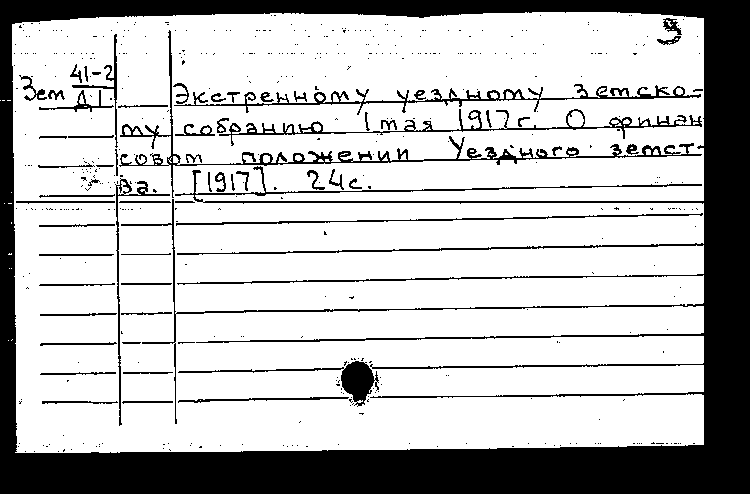 Э
Зем 41-2
Д1
Экстренному уездному Земско-
му собранию 1 мая 1917 г. О финан
совом положении Уездного земст-
ва. [1917]. 24с.